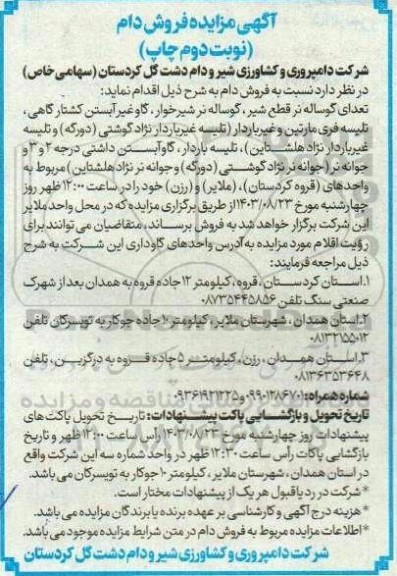 آگهی مزایده فروش دام
(نوبت دوم چاپ)
شرکت دامپروری و کشاورزی شیر و دام دشت گل کردستان (سهامی خاص)
در نظر دارد نسبت به فروش دام به شرح ذیل اقدام نماید:
تعدای گوساله نر قطع شیر، گوساله نر شیرخوار، گاو غیر آبستن کشتارگاهی،
تلیسه فری مارتین و غیرباردار (تلیسه غیرباردار نژاد گوشتی (دورگه) و تلیسه
غیرباردار نژاد هلشتاین)، تلیسه باردار، گاو آبستن داشتی درجه ۲ و ۳ و
جوانه نر (جوانه نر نژاد گوشتی (دورگه) و جوانه نر نژاد هلشتاین) مربوط به
واحدهای (قروه کردستان)، (ملایر) و (رزن) خود را در ساعت ۱۲:۰۰ ظهر روز
چهارشنبه مورخ ۱۴۰۳/۰۸/۲۳ از طریق برگزاری مزایده که در محل واحد ملایر
این شرکت برگزار خواهد شد به فروش برساند، متقاضیان می توانند برای
رؤیت اقلام مورد مزایده به آدرس واحدهای گاوداری این شرکت به شرح
ذیل مراجعه فرمایند:
۱. استان کردستان، قروه، کیلومتر ۱۲ جاده قروه به همدان بعد از شهرک
صنعتی سنگ تلفن ۰۸۷۳۵۴۴۵۸۵۶
۲. استان همدان، شهرستان ملایر، کیلومتر ۱۰ جاده جوکار به تویسرکان تلفن
۰۸۱۳۲۱۵۵۰۱۲
۳. استان همدان، رزن، کیلومتر ۵ جاده قروه به درگزین، تلفن
۰۸۱۳۶۳۵۳۶۴۸
شماره همراه: ۰۹۹۰۱۳۸۶۷۰۱ و ۰۹۳۶۱۹۲۲۲۲۵
تاریخ تحویل و بازگشایی پاکت پیشنهادات: تاریخ تحویل پاکت های
پیشنهادات روز چهارشنبه مورخ ۱۴۰۳/۰۸/۲۳ رأس ساعت ۱۲:۰۰ ظهر و تاریخ
بازگشایی پاکات رأس ساعت ۱۲:۳۰ ظهر در واحد شماره سه این شرکت واقع
در استان همدان، شهرستان ملایر، کیلومتر ۱۰ جوکار به تویسرکان می باشد.
*شرکت در رد یا قبول هر یک از پیشنهادات مختار است.
*هزینه درج آگهی و کارشناسی بر عهده برنده یا برندگان مزایده می باشد.
*اطلاعات مزایده مربوط به فروش دام در متن شرایط مزایده موجود می باشد.
شرکت دامپروری و کشاورزی شیر و دام دشت گل کردستان